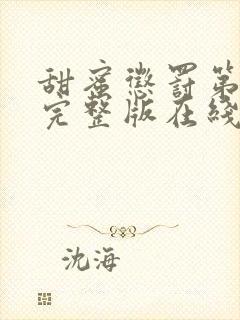 甜蜜懲罰第
完整版在綫
沈海